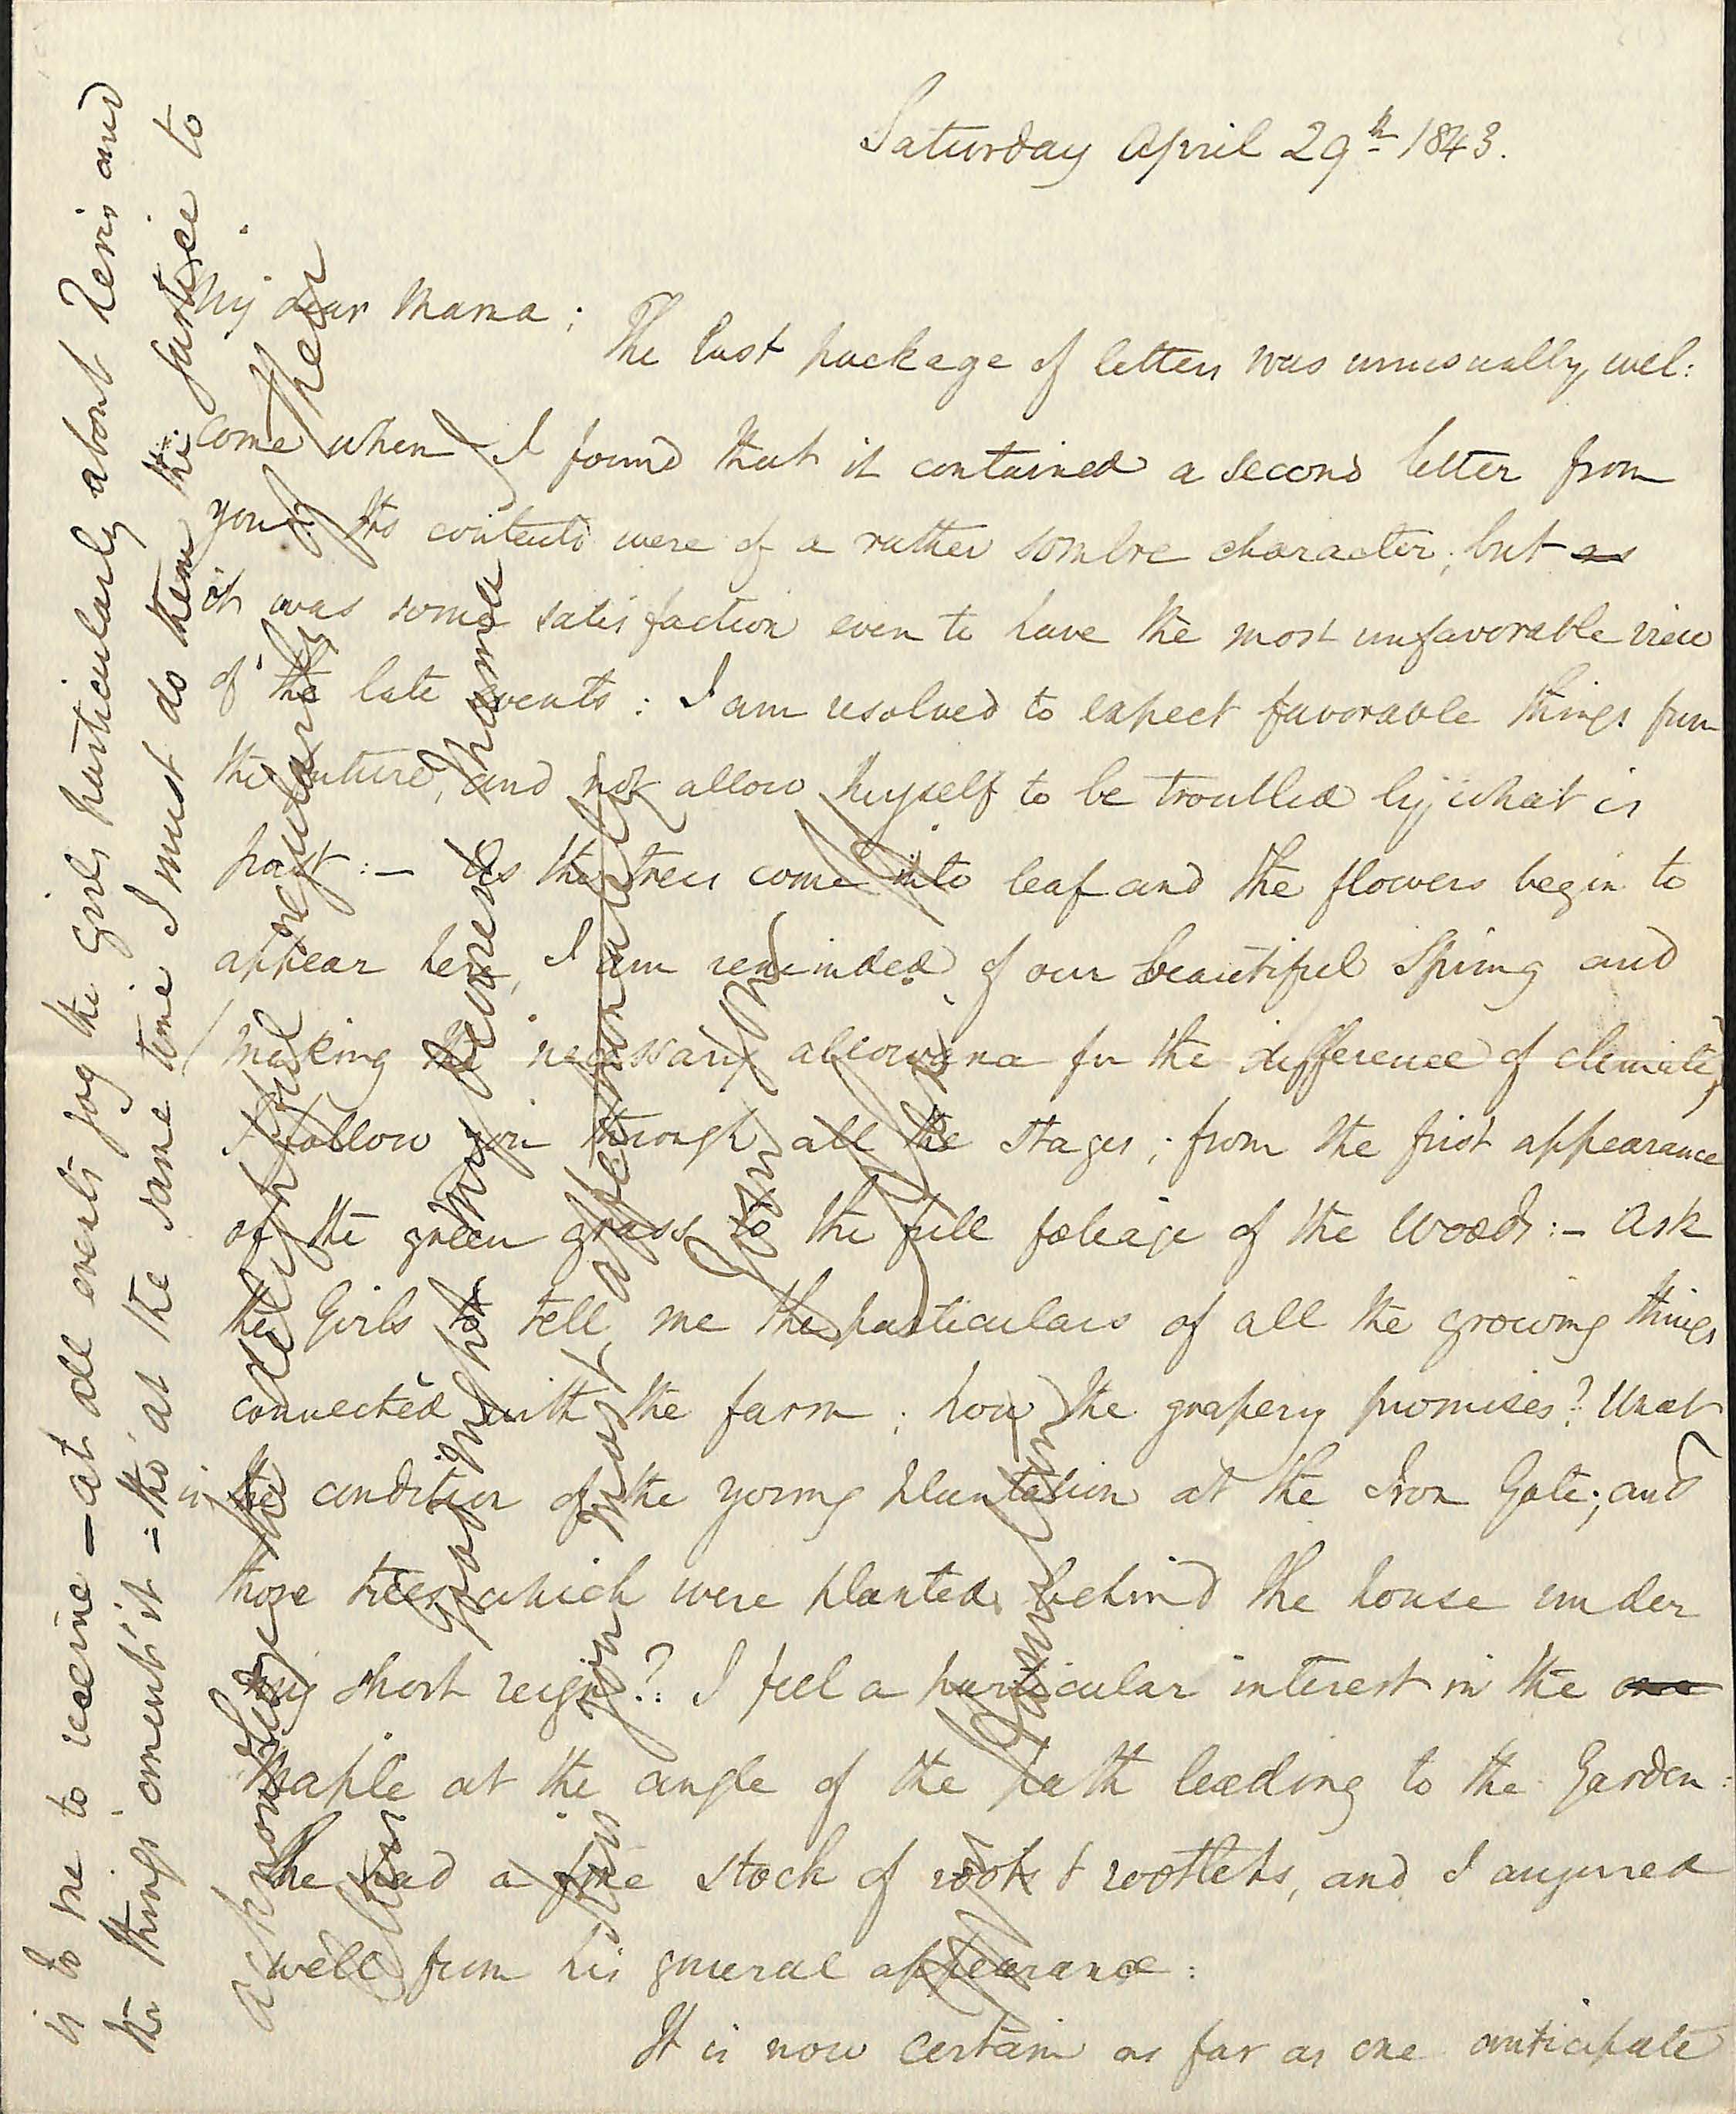 Saturday April 29th 1843.
My dear Mama;
The last package of letters was unusually wel:
come when I found that it contained a second letter from
you. Its contents were of a rather sombre character; but as
it was some satisfaction even to have the most unfavorable view
of the late events: I am resolved to expect favorable things from
the future, and not allow myself to be troubled by what is
past:— As the trees come into leaf and the flowers begin to
appear here, I am reminded of our beautiful Spring and
(making the necessary allowance for the difference of climate)
I follow you through all the stages; from the first appearance
of the green grass to the full foleage of the woods:— Ask
the Girls to tell me the particulars of all the growing things
connected with the farm; how the grapery promises? What
is the condition of the young plantation at the Iron Gate; and
those trees which were planted behind the house under
my short reign? I feel a particular interest in the one
Maple at the angle of the path leading to the Garden:
he had a fine stock of roots & rootlets, and I augured
well from his general appearance:
It is now certain as far as one anticipate
is to me to receive — at all events jog the girls particularly about and
the things = tho' at the same time I must do them the justice to
acknowledge the delightful regularity of their
letters
Good night my dearest Mama
your most affectionately